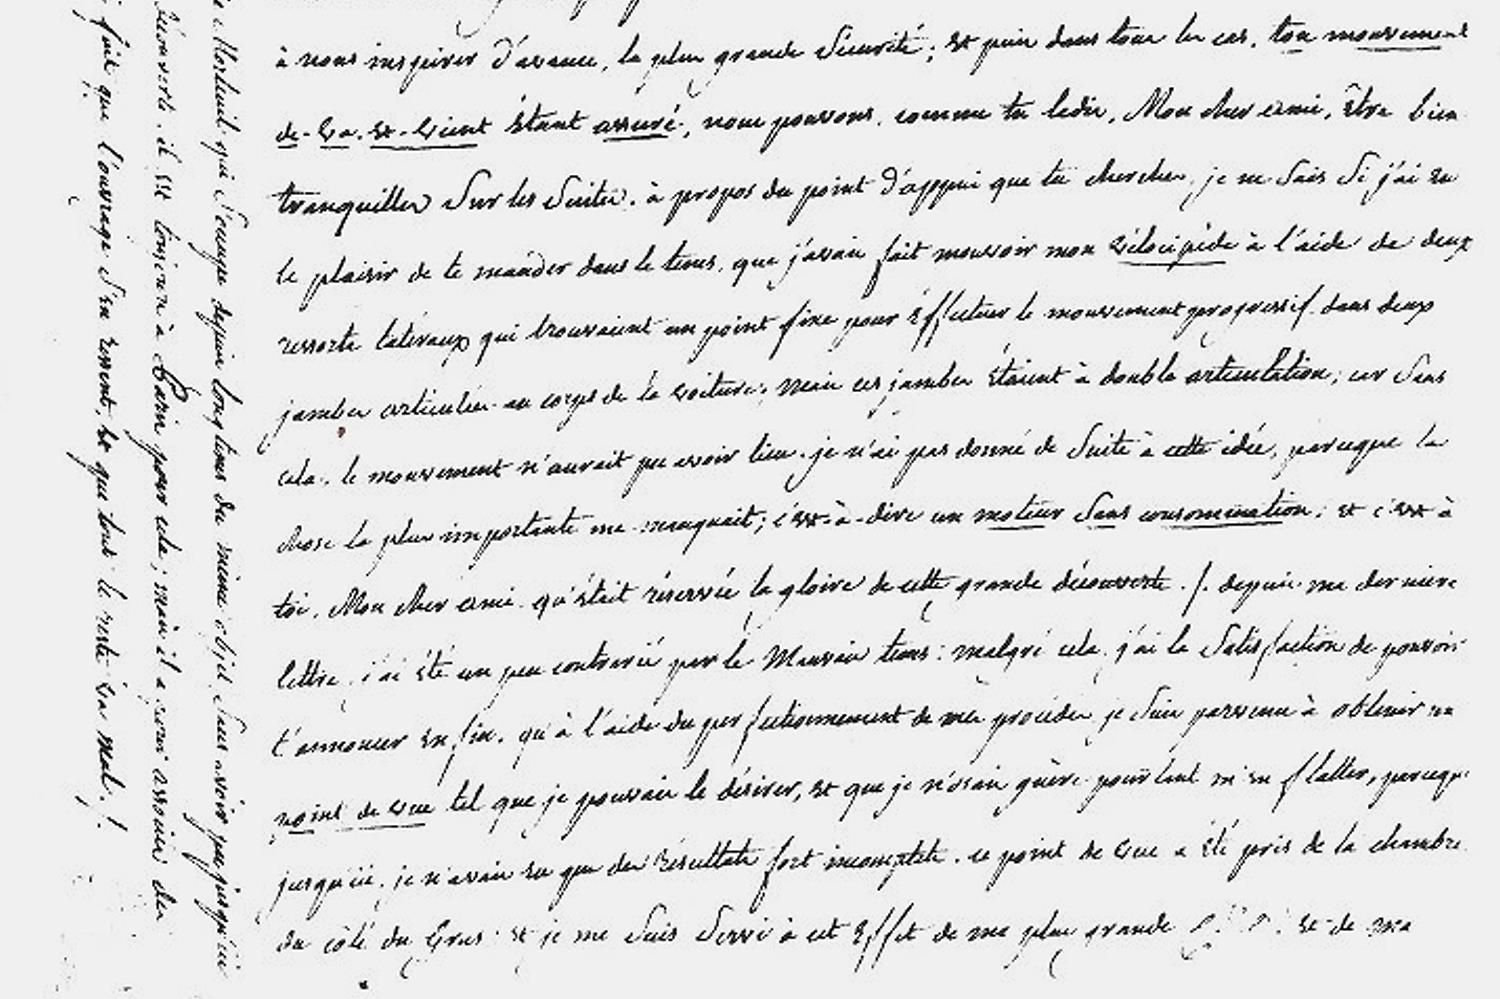 à nous inspirer d'avance, la plus grande Sécurité; et puis dans tous les cas, ton mouvement
de-va-et-vient étant assuré, nous pouvons, comme tu le dis, Mon cher ami, être bien
tranquilles Sur les Suites. à propos du point d'appui que tu cherches, je ne Sais Si j'ai eu
le plaisir de te mander dans le tems, que j'avais fait mouvoir mon vélocipède à l'aide de deux
ressorts latéraux qui trouvaient un point fixe pour éffectuer le mouvement progressif dans deux
jambes articulées au corps de la voiture; mais ces jambes étaient à double articulation; car Sans
cela, le mouvement n'aurait pu avoir lieu. je n'ai pas donné de Suite à cette idée, parceque la
chose la plus importante me manquait; c'est-à-dire un moteur Sans consommation; et c'est à
toi, Mon cher ami, qu'était réservée la gloire de cette grande découverte. /. depuis ma dernière
lettre, j'ai été un peu contrarié par le Mauvais tems: malgré cela, j'ai la Satisfaction de pouvoir
t'annoncer enfin, qu'à l'aide du perfectionnement de mes procédés je Suis parvenu à obtenir un
point de vue tel que je pouvais le désirer, et que je n'osais guère pourtant m'en flatter, parceque
jusqu'ici, je n'avais eu que des résultats fort incomplets. ce point de vue a été pris de la chambre
du côté du Gras; et je me Suis Servi à cet éffet de ma plus grande et de ma
qui S'occupe depuis longtems du même objet Sans avoir pu jusqu'ici
découverte. il est toujours à Paris pour cela; mais il a associer des
fait que l'ouvrage S'en ressent, et que tout le reste va mal. !